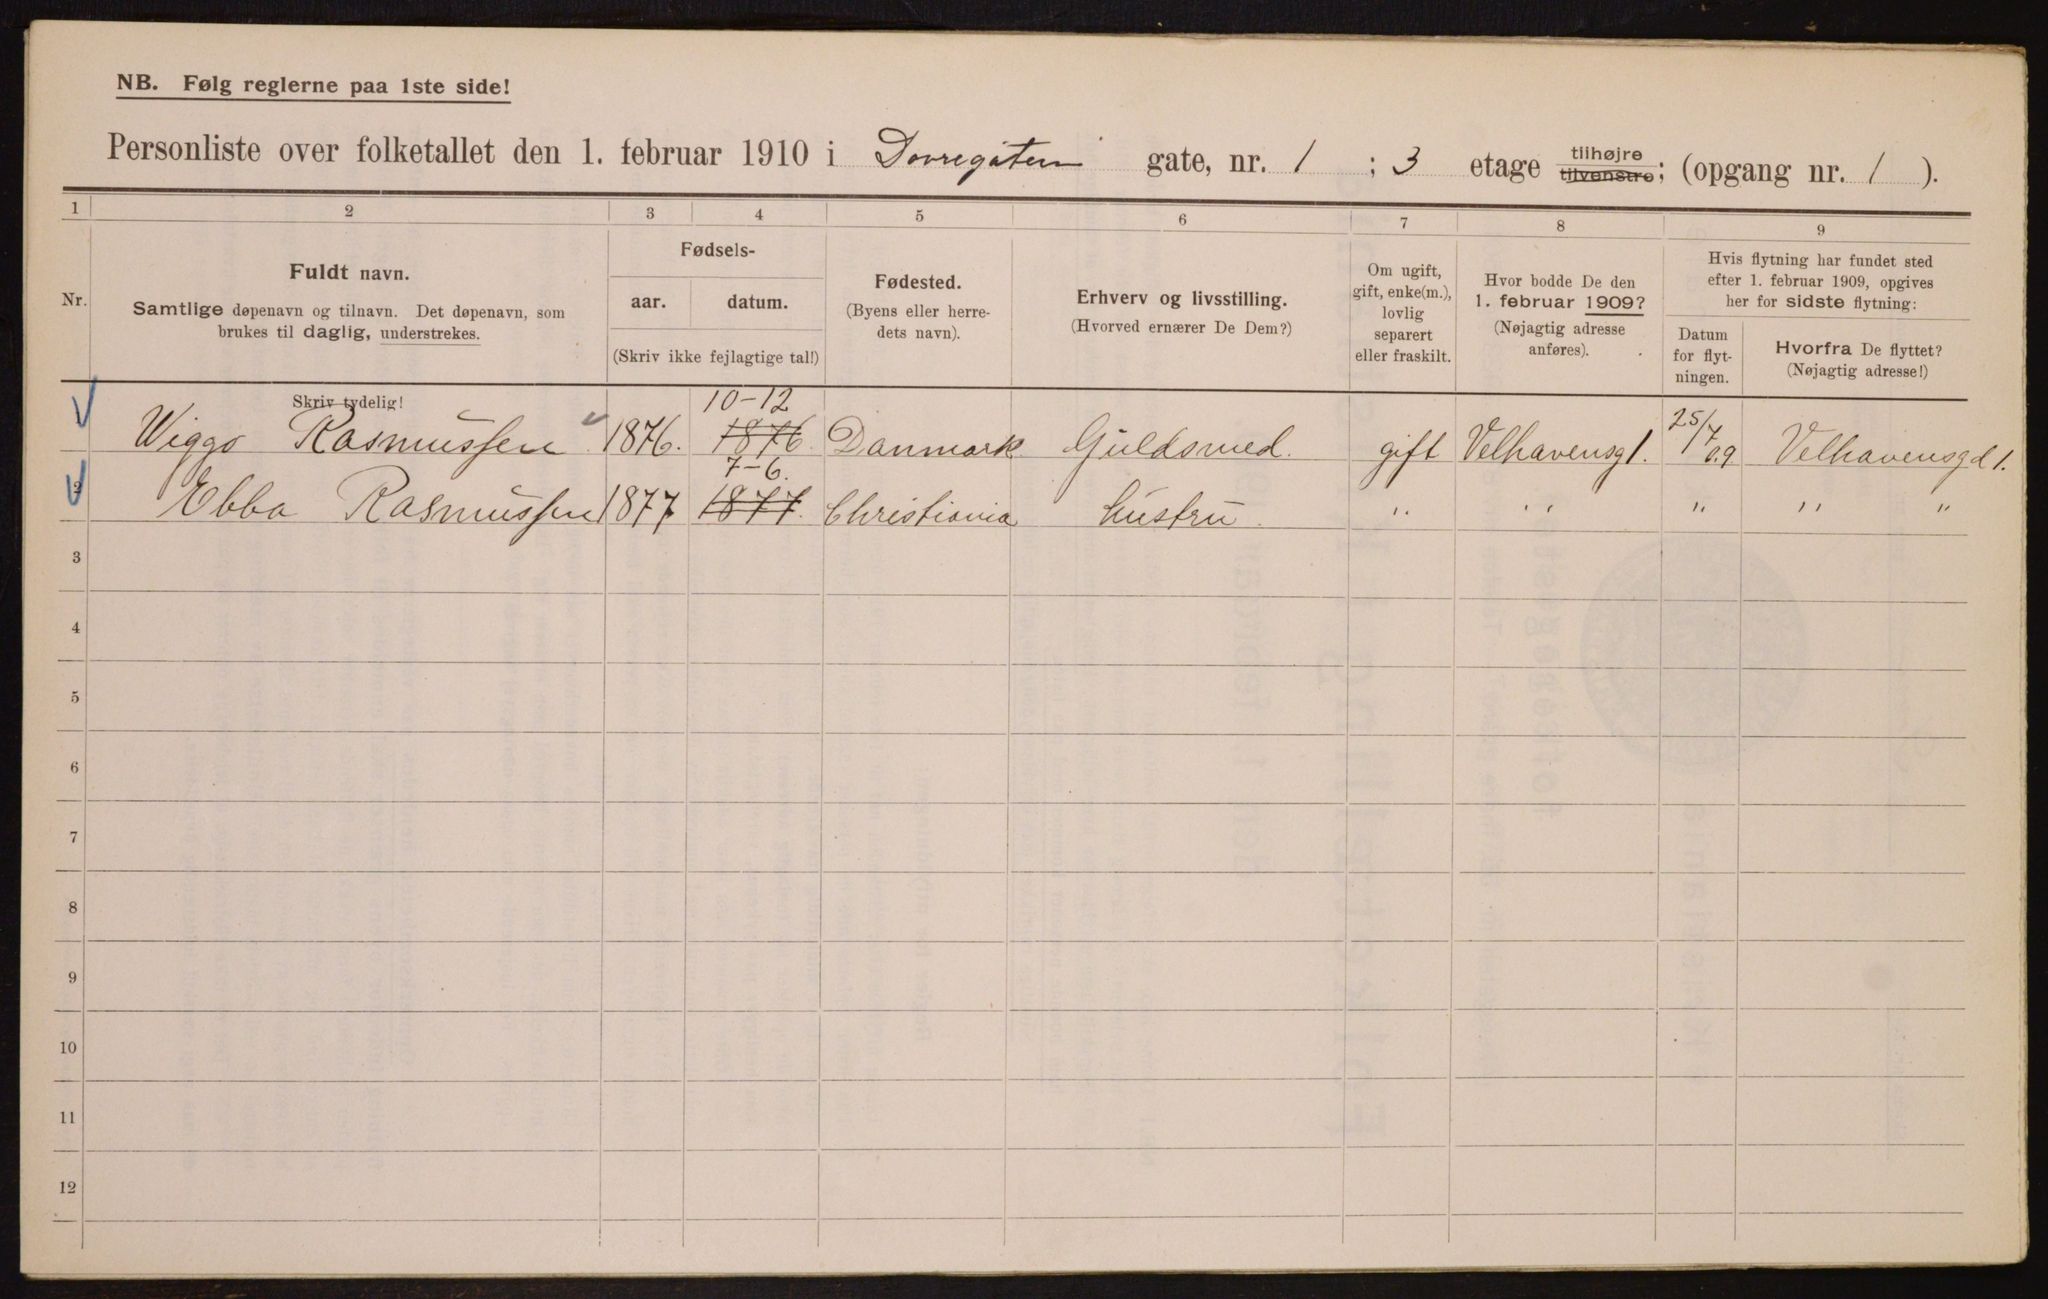 NB. Følg reglerne paa 1ste side!
Personliste over folketallet den 1. februar 1910 i Dovregaten gate, nr. 1 ; 3 etage tilhøjre tilvenstre; (opgang nr. 1 ).
1 2 3 4 5 6 7 8 9
Nr.
Fuldt navn.
Samtlige døpenavn og tilnavn. Det døpenavn, som
brukes til daglig, understrekes.
Fødsels-
aar. datum.
(Skriv ikke fejlagtige tal!)
Fødested.
(Byens eller herre-
dets navn).
Erhverv og livsstilling.
(Hvorved ernærer De Dem?)
Om ugift,
gift, enke(m.),
lovlig
separert
eller fraskilt.
Hvor bodde De den
1. februar 1909?
(Nøjagtig adresse
anføres).
Hvis flytning har fundet sted
efter 1. februar 1909, opgives
her for sidste flytning:
Datum
for flyt-
ningen.
Hvorfra De flyttet?
(Nøjagtig adresse!)
Skriv tydelig!
10-12
Wiggo Rasmussen 1876. 1876. Danmark Guldsmed. gift Velhavensg 1. 25/7 09 Velhavensgd 1.
7-6.
2 Ebba Rasmussen 1877 1877. Christiania hustru. " " " " "
3
4
5
6
7
8
9
10
11
12